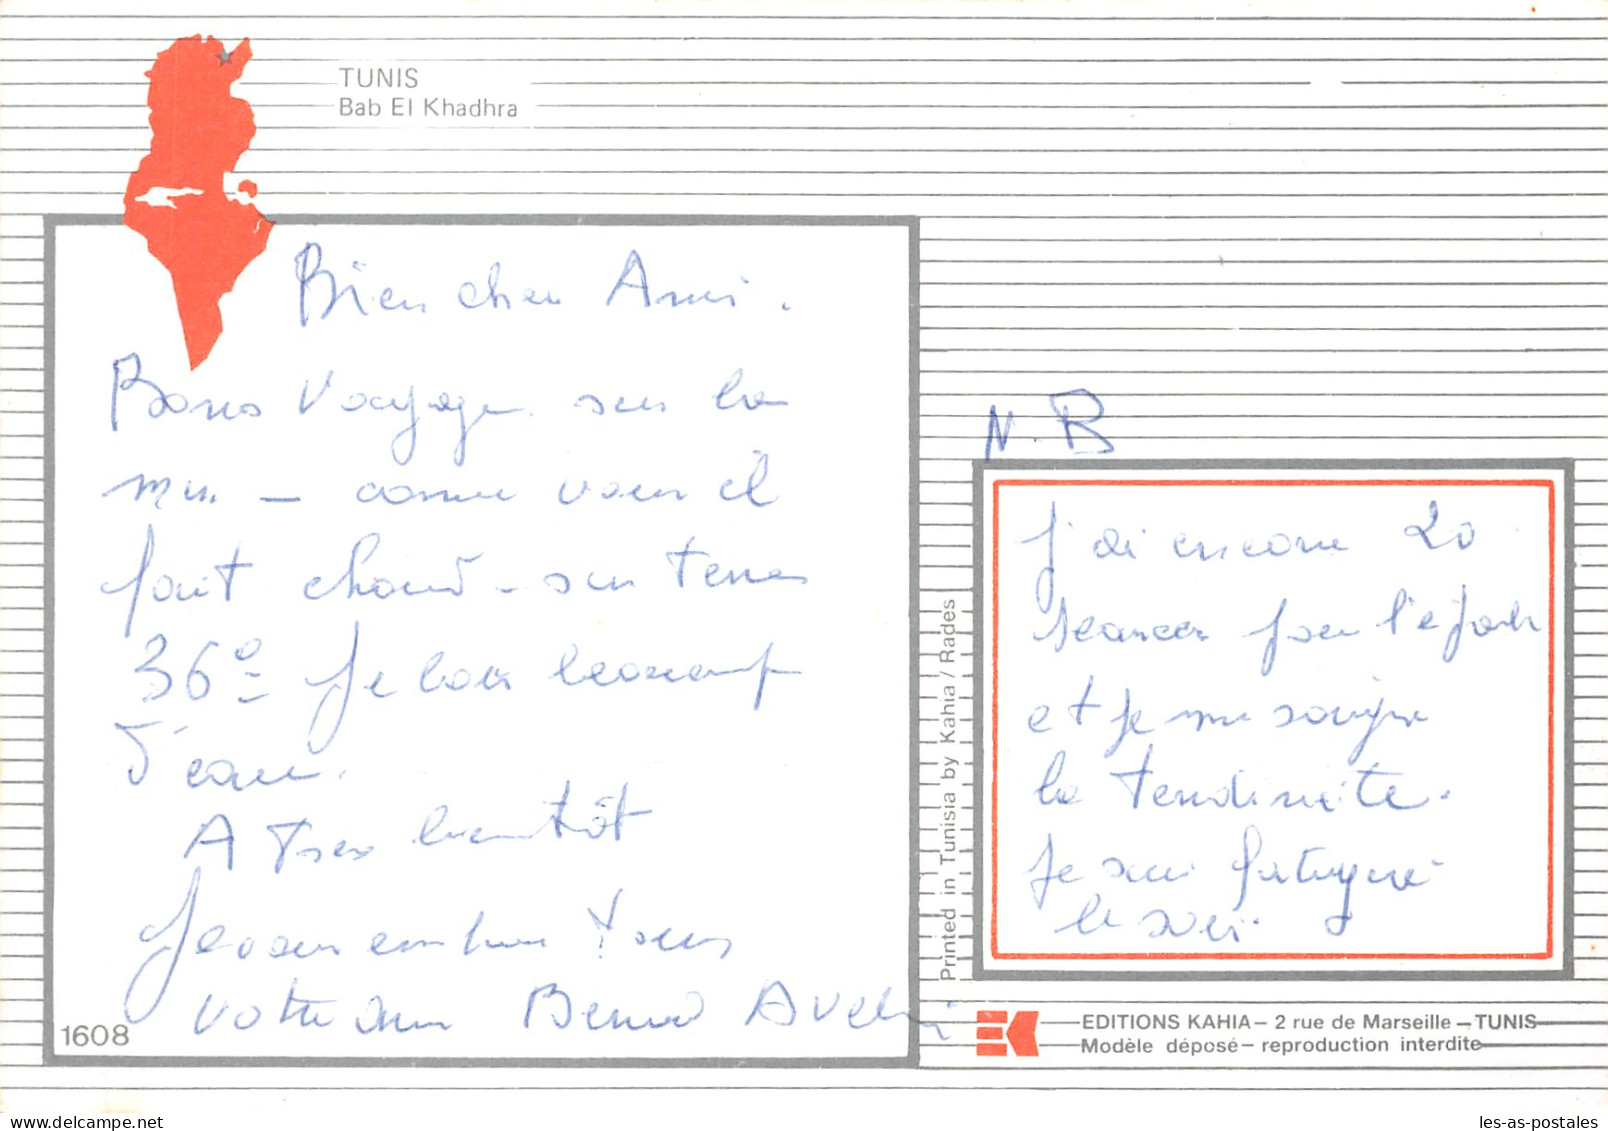 TUNIS
Bab El Khadhra
Bien cher Ami.
Bons voyage sur la
mer - comme vous il
fait chaud - sur terre
36° Je bois beaucoup
d'eau.
A Tres bientôt
Je vous embrasse tous
votre ami Bernard
1608
Printed in Tunisia by Kahia/Rades
N.B
J'ai encore 20
seances pour l'epaule
et je me soigne
la tendinite.
Je suis fatigué
le soir.
EDITIONS KAHIA - 2 rue de Marseille - TUNIS
Modèle déposé - reproduction interdite
les-as-postales